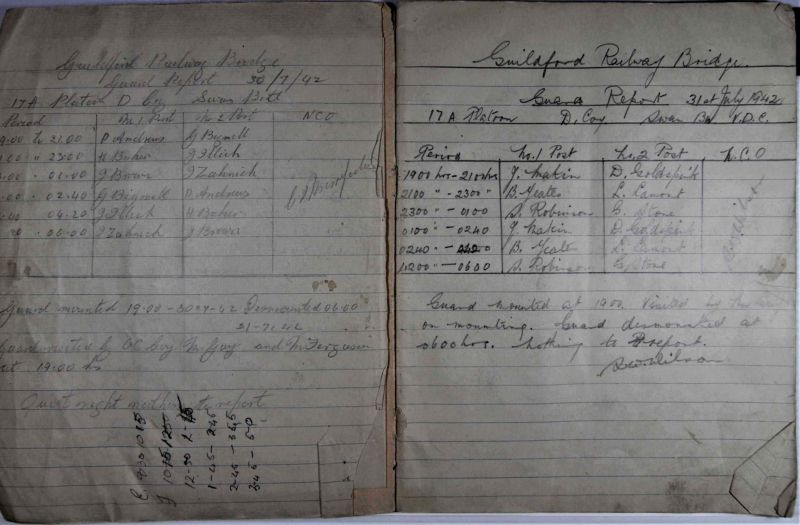 Guildford Railway Bridge
Guard Report 30/7/42
17A Platoon D Coy Swan Batt
Period No 1 Post No 2 Post NCO
19.00 to 21.00 P Andrews J Bignell
" 23.00 H Baker J Illich
01.00 J Brown J Zahnich
" 02.40 J Bignell P Andrews
04.20 J Illich H Baker
06.00 J Zahnich J Brown
Guard mounted 19.00 - 30-7-42 Dismounted 06.00
31-7-42
Guard visited by OC Coy and
at 19.00 hrs
Quiet night nothing to report
12-30 2-15
1-45 - 2-45
2-45 - 3-45
3-45 - 5-0
Guildford Railway Bridge.
Guard Report 31st July 1942
17 A Platoon D. Coy Swan Bn V.D.C.
Period No.1 Post No.2 Post N.C.O
1900 hrs - 2100 hrs J. Makin D. Goldspink
2100 " - 2300 " B. Yeates L. Lamont
2300 " - 0100 S. Robinson G. Stone
0100 " - 0240 J. Makin D. Goldspink
0240 " - 0420 B. Yeates L. Lamont
0420 " - 0600 S. Robinson G Stone
Guard mounted at 1900. Visited by
on mounting. Guard dismounted at
0600 hrs. Nothing to report.
Wilson